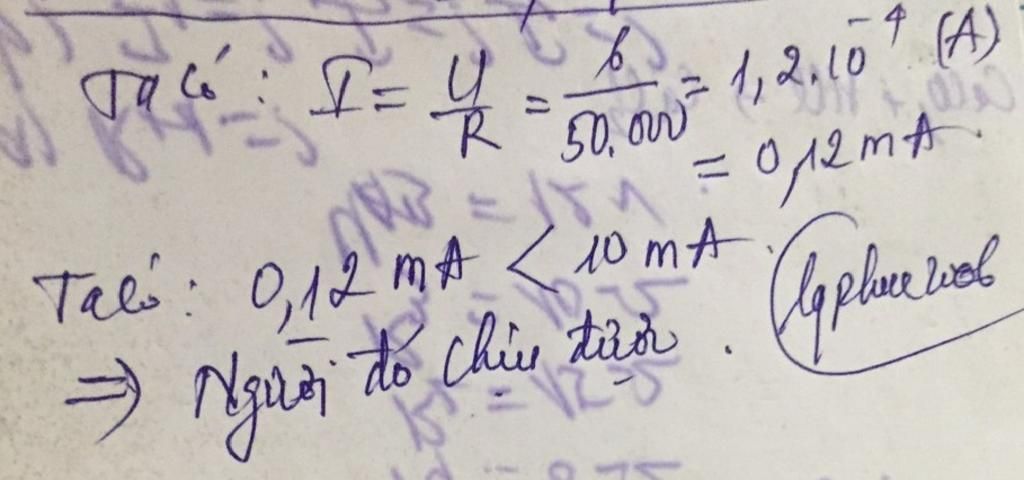 Ta có : I = U/R = 6/50.000 = 1,2.10⁻⁴ (A)
= 0,12 mA.
Ta có : 0,12 mA < 10 mA.
⇒ Người đó chịu được.